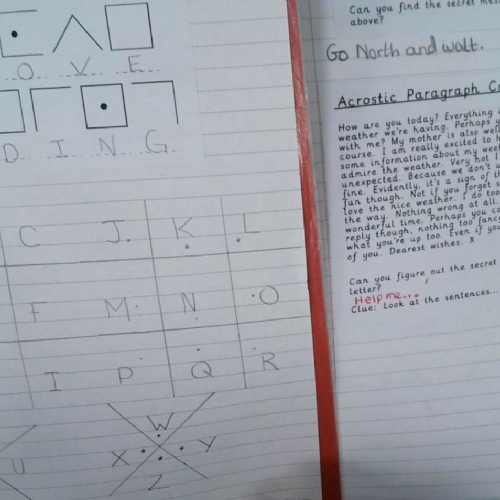 O V E
D I N G
C J K L
F M N O
I P Q R
W
U X Y
Z
Can you find the secret mes
above?
Go North and wait.
Acrostic Paragraph Co
How are you today? Everything
weather we're having. Perhaps y
with me? My mother is also wel
course. I am really excited to h
some information about my week
admire the weather. Very hot
unexpected. Because we don't u
fine. Evidently, it's a sign of th
fun though. Not if you forget s
love the nice weather. I do too
the way. Nothing wrong at all.
wonderful time. Perhaps you co
reply though, nothing too fanc
what you're up too. Even if you
of you. Dearest wishes. X
Can you figure out the secret
letter?
Help me...
Clue: Look at the sentences...